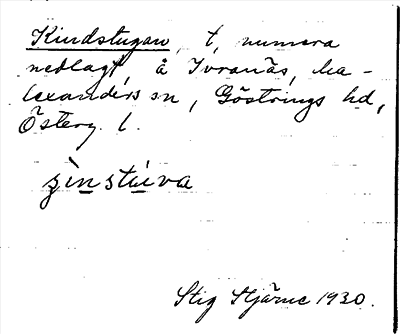 Kindstugan, t, numera
nedlagt, å Ivranäs, Ma-
lexanders sn, Göstrings hd,
Österg. l.
şìnstúva
Stig Stjärne 1930.